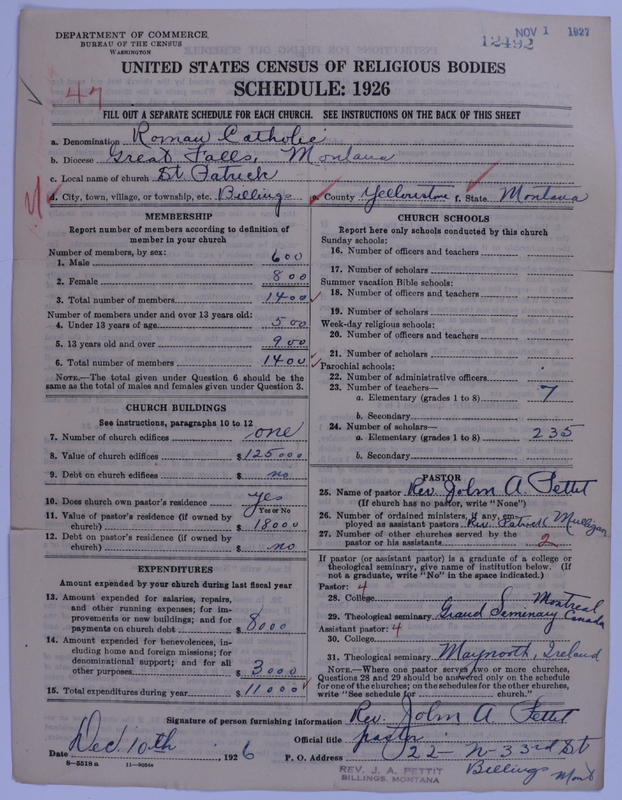 DEPARTMENT OF COMMERCE
BUREAU OF THE CENSUS
WASHINGTON
12492
NOV 1 1927
UNITED STATES CENSUS OF RELIGIOUS BODIES
SCHEDULE: 1926
47
FILL OUT A SEPARATE SCHEDULE FOR EACH CHURCH. SEE INSTRUCTIONS ON THE BACK OF THIS SHEET
a. Denomination Roman Catholic
b. Diocese Great Falls, Montana
c. Local name of church St. Patrick
d. City, town, village, or township, etc. Billings e. County Yellowstone f. State Montana
MEMBERSHIP
Report number of members according to definition of
member in your church
Number of members, by sex:
1. Male 600
2. Female 800
3. Total number of members 1400
Number of members under and over 13 years old:
4. Under 13 years of age 500
5. 13 years old and over 900
6. Total number of members 1400
NOTE.—The total given under Question 6 should be the
same as the total of males and females given under Question 3.
CHURCH BUILDINGS
See instructions, paragraphs 10 to 12
7. Number of church edifices one
8. Value of church edifices $125000
9. Debt on church edifices $ no
10. Does church own pastor's residence yes
Yes or No
11. Value of pastor's residence (if owned by
church) $18000
12. Debt on pastor's residence (if owned by
church) $ no
EXPENDITURES
Amount expended by your church during last fiscal year
13. Amount expended for salaries, repairs,
and other running expenses; for im-
provements or new buildings; and for
payments on church debt $8000
14. Amount expended for benevolences, in-
cluding home and foreign missions; for
denominational support; and for all
other purposes $3000
15. Total expenditures during year $11000
CHURCH SCHOOLS
Report here only schools conducted by this church
Sunday schools:
16. Number of officers and teachers
17. Number of scholars
Summer vacation Bible schools:
18. Number of officers and teachers
19. Number of scholars
Week-day religious schools:
20. Number of officers and teachers
21. Number of scholars
Parochial schools:
22. Number of administrative officers
23. Number of teachers—
a. Elementary (grades 1 to 8) 7
b. Secondary
24. Number of scholars—
a. Elementary (grades 1 to 8) 235
b. Secondary
PASTOR
25. Name of pastor Rev. John A. Pettit
(If church has no pastor, write "None")
26. Number of ordained ministers, if any, em-
ployed as assistant pastors Rev. Patrick Mulligan
27. Number of other churches served by the
pastor or his assistants 2
If pastor (or assistant pastor) is a graduate of a college or
theological seminary, give name of institution below. (If
not a graduate, write "No" in the space indicated.)
Pastor: 4
28. College
29. Theological seminary Grand Seminary Montreal Canada
Assistant pastor: 4
30. College
31. Theological seminary Maynooth, Ireland
NOTE.—Where one pastor serves two or more churches,
Questions 28 and 29 should be answered only on the schedule
for one of the churches; on the schedules for the other churches,
write "See schedule for church."
Signature of person furnishing information Rev. John A. Pettit
Official title pastor
Date Dec. 10th, 1926 P. O. Address 22- N-33rd St
Billings Mont
8-5518a 11-90564
REV. J. A. PETTIT
BILLINGS, MONTANA